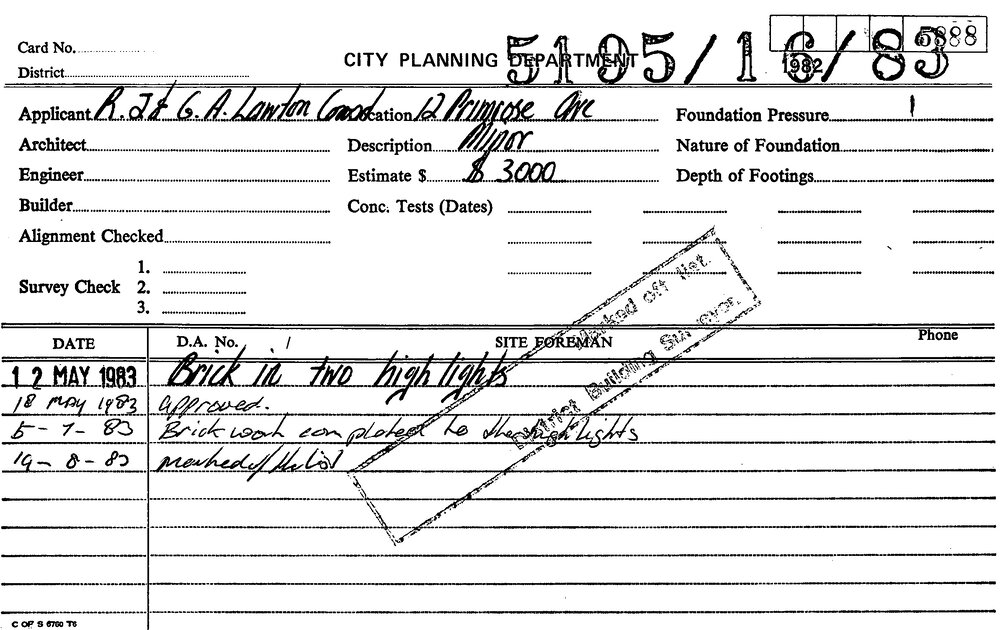 Card No.
5888
CITY PLANNING DEPARTMENT 5195/16/83
1982
District
Applicant R. J & G. A. Lawton Location 12 Primrose Ave Foundation Pressure
Architect Description Minor Nature of Foundation
Engineer Estimate $ $ 3000 Depth of Footings
Builder Conc. Tests (Dates)
Alignment Checked
1.
Survey Check 2.
3.
Marked off list.
District Building Surveyor.
DATE D.A. No. / SITE FOREMAN Phone
12 MAY 1983 Brick in two highlights
18 MAY 1983 approved.
5-7-83 Brickwork completed to the highlights
19-8-83 marked off the list
C OF S 6760 T6